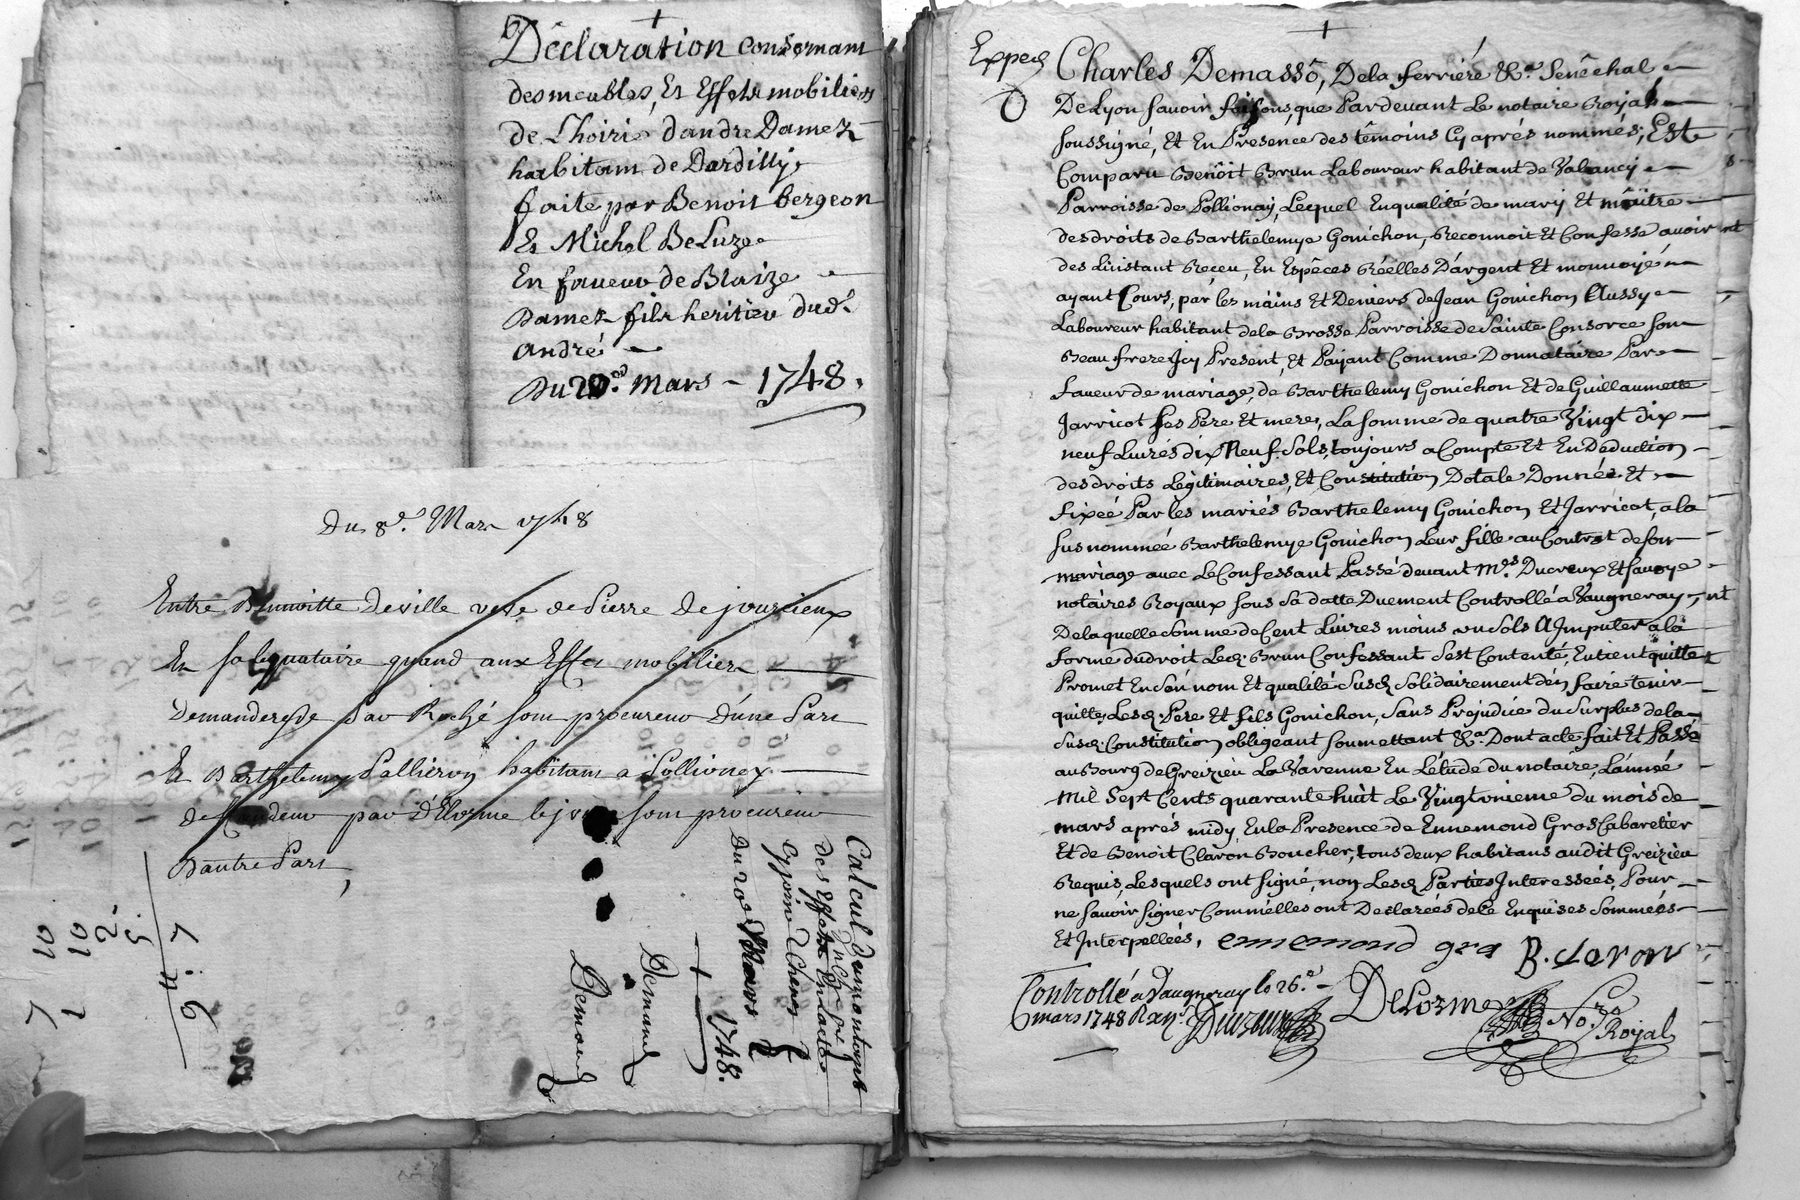 Déclaration consernant
des meubles, Et Effets mobiliers
de L'hoirie d'andre Damez
habitant de Dardilly
faite par Benoit bergeon
Et Michel BeLuze
En faveur de Blaize
Damez fils heritier dud.
andré
Du 20e. Mars - 1748.
Du 8e. Mars 1748
Entre Deville vefe de Pierre De jourcieux
En sa quand aux Effets mobiliers
Demanderesse Par Roché son procureur D'une Part
Et Barthelemy Pallieron habitant a Pollioney
deffendeur par D'Elorme le jeune son procureur
D'autre Part,
Calcul du montant
des Effets
1748.
Demand
Demand
Exped
Charles Demassô, De la ferriere &a. Senêchal
De Lyon savoir faisons, que Pardevant Le notaire Royal
soussigné, Et En Presence des têmoins Cy aprés nommés, Est
Comparu Benoît Brun Laboureur habitant de Valancy
Parroisse de Pollionay, Lequel En qualité de mary Et maître
des droits de Barthelemye Gonichon, Reconnoit Et Confesse avoir
des L'instant Receu, En Espêces Réelles D'argent Et monnoyé
ayant Cours, par les mains Et Deniers de Jean Gonichon Aussy
Laboureur habitant de la Brosse Parroisse de Sainte Consorce son
Beau frere Icy Present, Et Payant Comme Donnataire Par
faveur de mariage, de Barthelemy Gonichon Et de Guillaumette
Jarricot ses Pere Et mere, La somme de quatre Vingt dix
neuf Livres dix Neuf Sols, toujours a Compte Et En Deduction
des droits Légitimaires, Et Constitution Dotale Donnée Et
fixéé Par les mariés Barthelemy Gonichon Et Jarricot, a la
susnommée Barthelemye Gonichon Leur fille au Contrat de son
mariage avec Le Confessant Passé devant Mes. Ducreux Et Savoye
notaires Royaux sous Sa datte Duement Controllé a Vaugneray,
De laquelle Somme de Cent Livres moins un Sols A Imputer a la
forme du droit Led. Brun Confessant s'est Contenté, En tient quitte
Promet En Son nom Et qualité Susd. Solidairement d'en faire tenir
quittes Lesd. Pere Et fils Gonichon, Sans Prejudice du Surplus de la
Susd. Constitution obligeant soumettant &a. Dont acte fait Et Passé
au Bourg de Greizieu La Varenne En L'étude du notaire, L'année
Mil Sept Cents quarante huit Le Vingt unieme du mois de
mars aprés midy En la Presence de Ennemond Gros Cabaretier
Et de Benoit Claron Boucher, tous deux habitans audit Greizieu
Requis, Lesquels ont signé, non Lesd. Parties Interessées, Pour
ne savoir signer Comm'elles ont Declarées de ce Enquises Sommées
Et Interpellées.
ennemond gro B. claron
Controllé a Vaugneray le 26e.
mars 1748
DeLorme No.re Royal